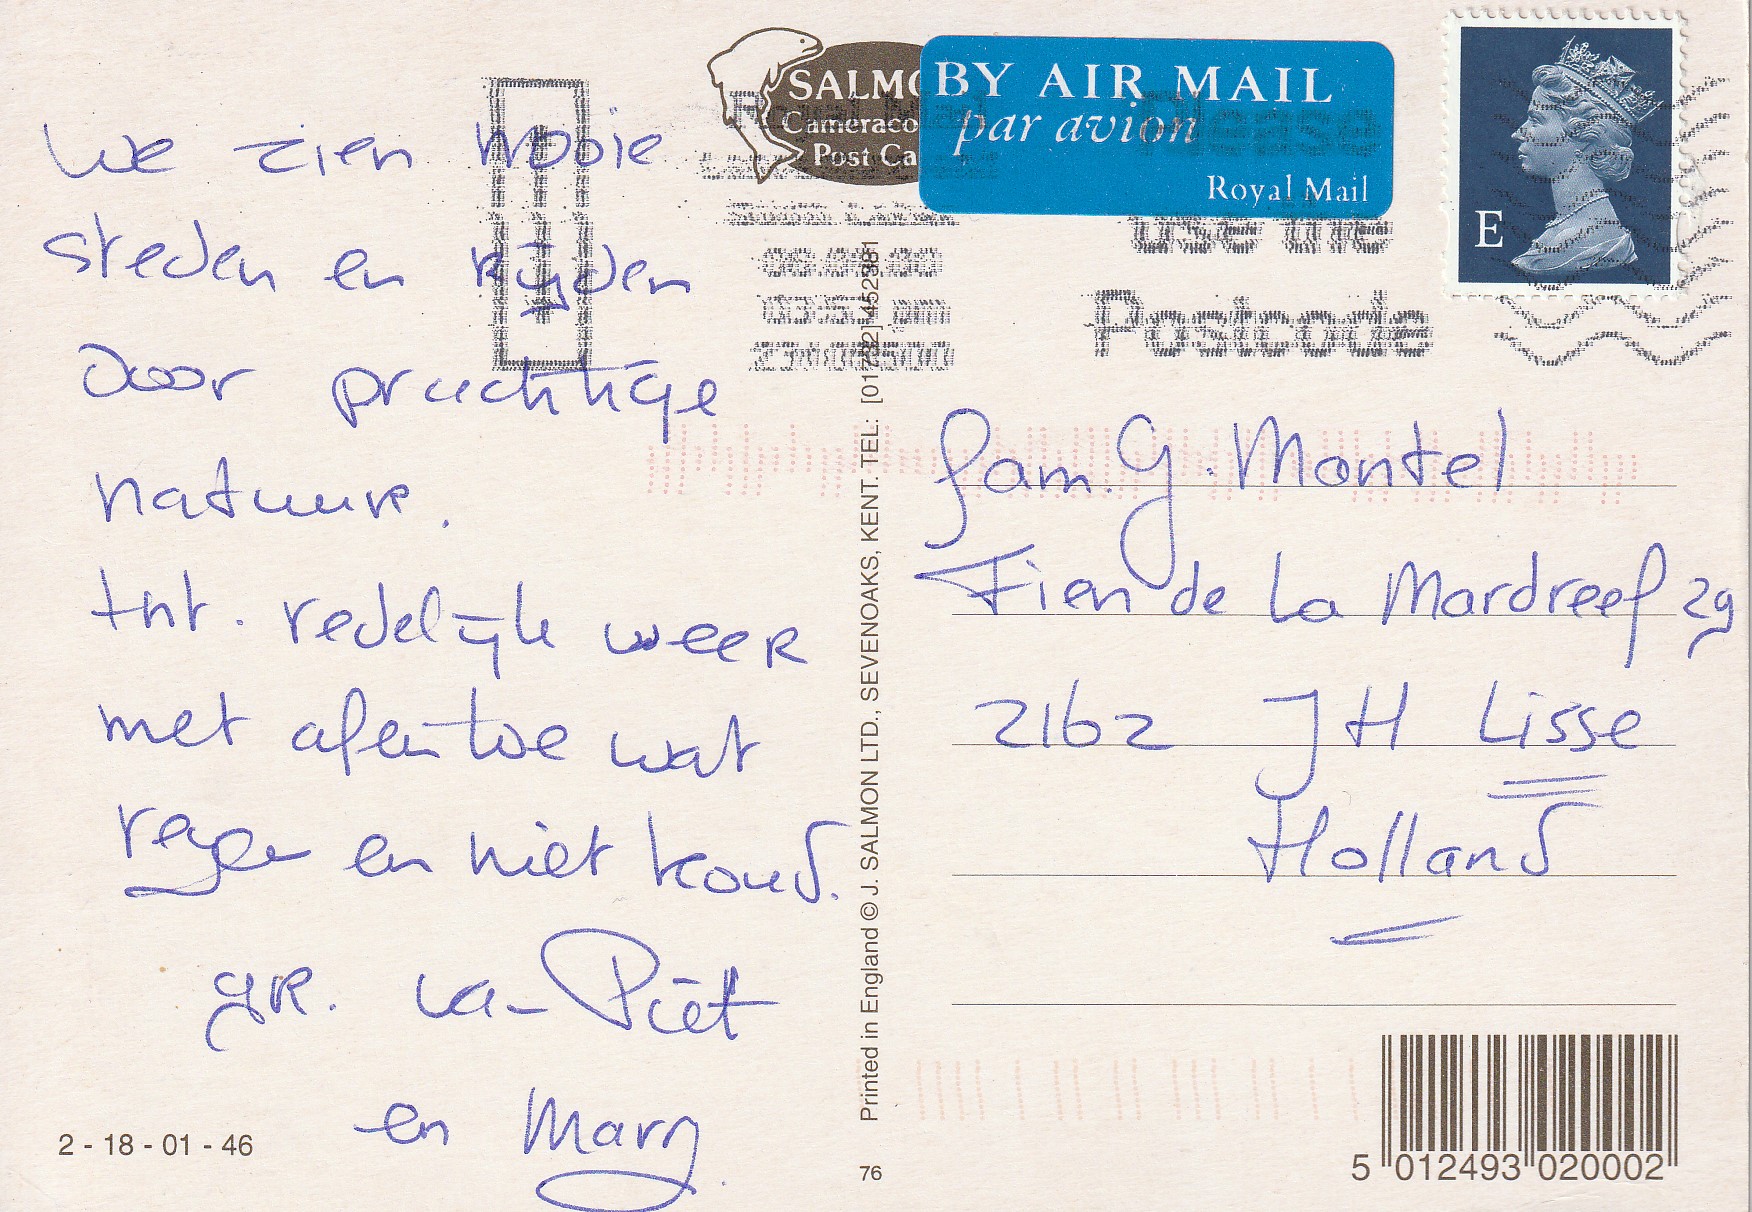 We zien mooie
steden en rijden
door prachtige
natuur.
tnt. redelijk weer
met af en toe wat
regen en niet koud.
gr. van Piet
en Mary
2 - 18 - 01 - 46
SALMO
Cameraco
Post Ca
BY AIR MAIL
par avion
Royal Mail
Royal Mail
Please
use the
Postcode
E
Printed in England © J. SALMON LTD., SEVENOAKS, KENT. TEL: [01732] 452381
76
fam. G. Montel
Fien de La Mardreef 29
2162 JH Lisse
Holland
5 012493 020002